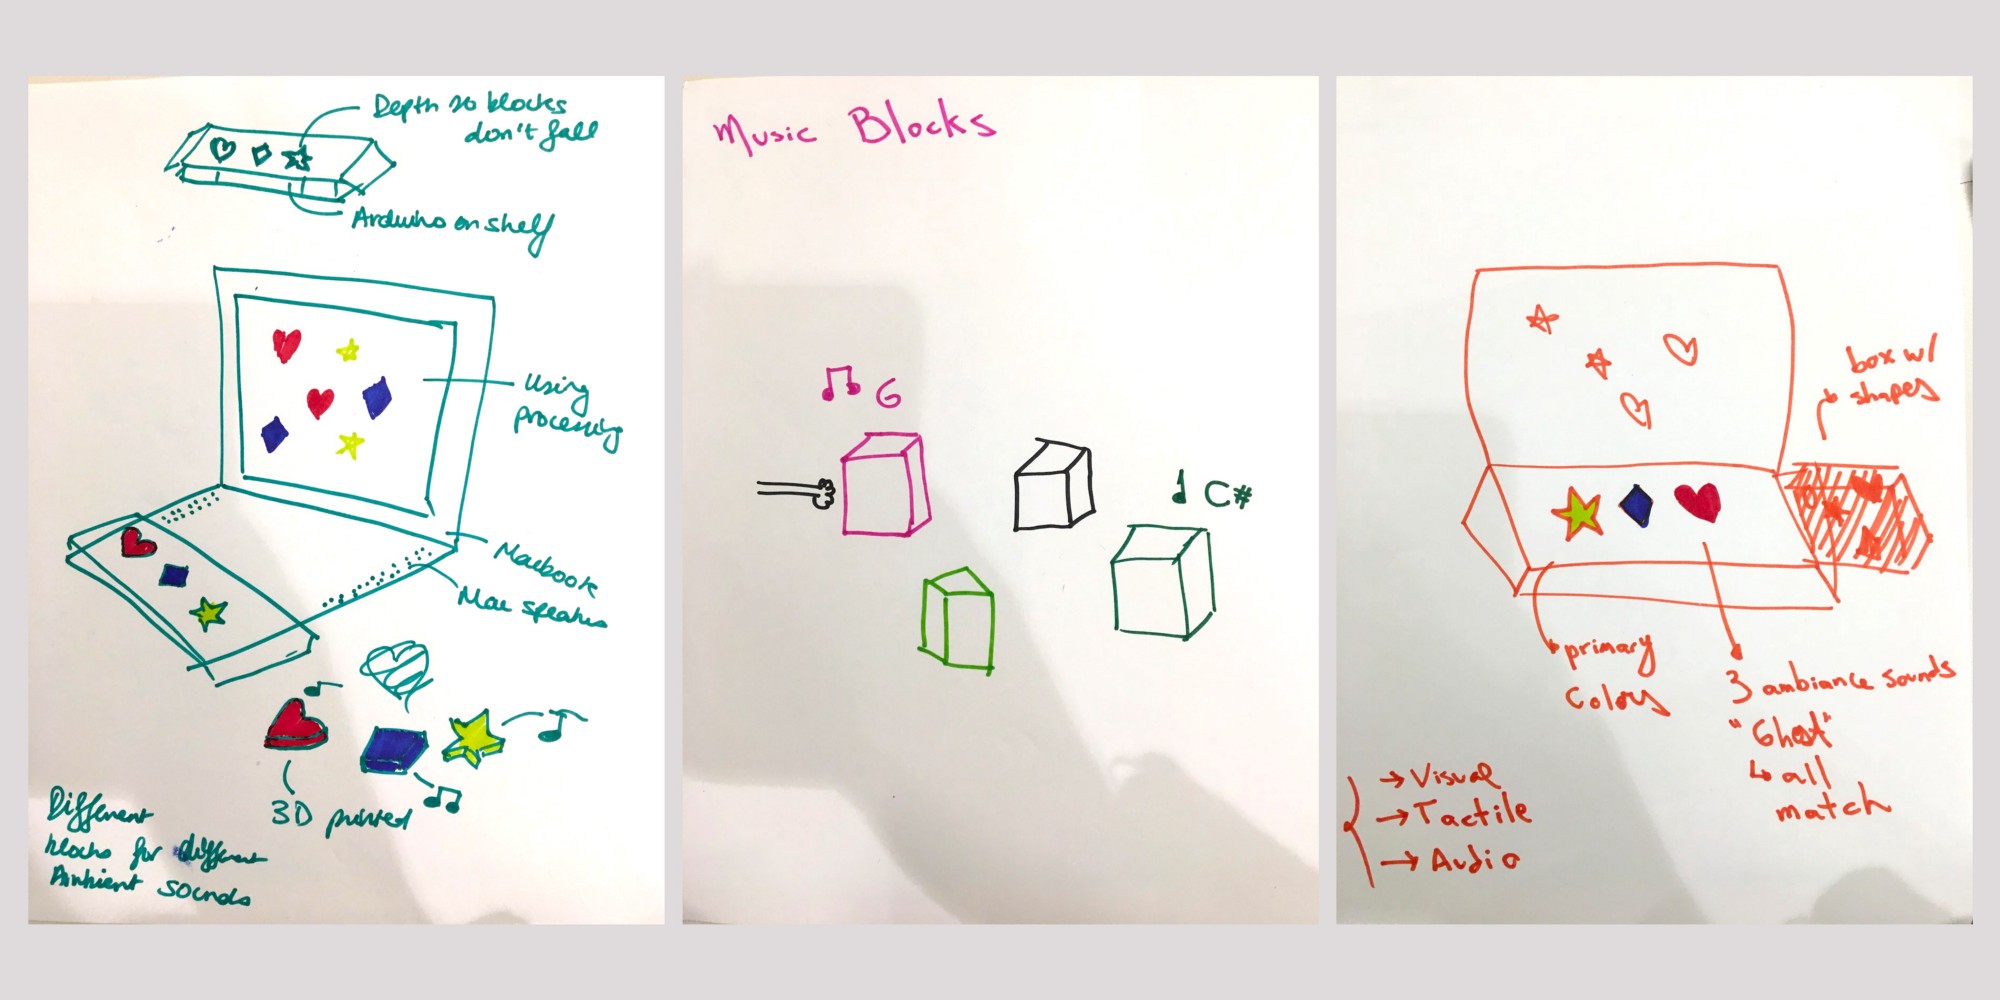 Depth so blocks
don't fall
Arduino on shelf
Using
processing
Macbook
Mac speakers
3D printed
Different
blocks for different
Ambient sounds
Music Blocks
G
C#
box w/
shapes
primary
Colors
3 ambiance sounds
"Ghost"
↳ all
match
→ Visual
→ Tactile
→ Audio